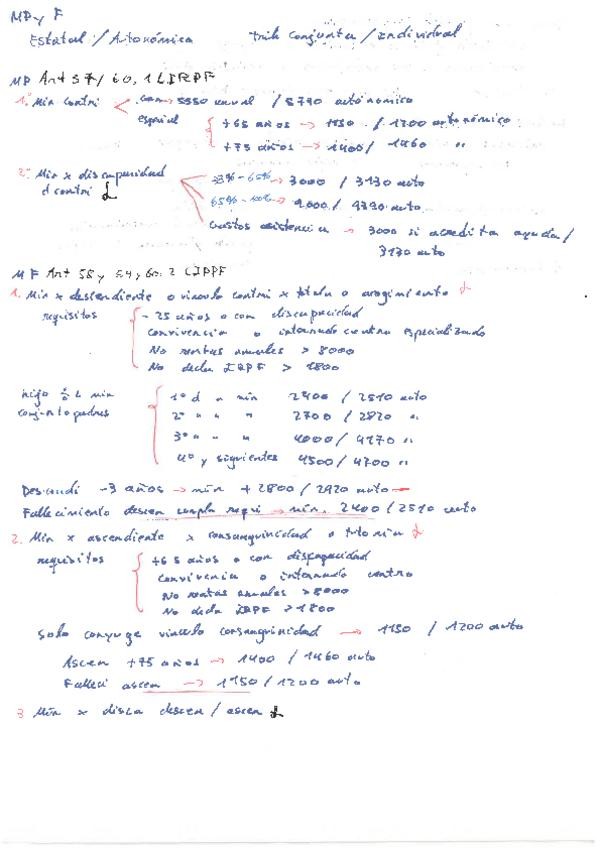 MP y F
Estatal / Autonómica Trib Conjunta / Individual
MP Art 57 / 60, 1 LIRPF
1. Min contri con → 5550 anual / 5790 autónomico
especial +65 años → 1150 / 1200 autonómico
+75 años → 1400 / 1460 "
2. Min x discapacidad 33% - 65% → 3000 / 3130 auto
d contri 65% - 100% → 9000 / 9390 auto
Gastos asistencia → 3000 si acredita ayuda /
3130 auto
MF Art 58 y 59 y 60.2 LIRPF
1. Min x descendiente o vinculo contri x tutela o acogimiento
requisitos - 25 años o con discapacidad
Convivencia o internado centro especializado
No rentas anuales > 8000
No decla IRPF > 1800
hijo 1º d " min 2400 / 2510 auto
conjunto padres 2º " " " 2700 / 2820 "
3º " " " 4000 / 4170 "
4º y siguientes 4500 / 4700 "
Descendi -3 años → min + 2800 / 2920 auto
Fallecimiento descen cumpla requi → min. 2400 / 2510 auto
2. Min x ascendiente x consanguinidad o tutoria
requisitos +65 años o con discapacidad
Convivencia o internado centro
No rentas anuales > 8000
No decla IRPF > 1800
Solo conyuge vinculo consanguinidad → 1150 / 1200 auto
Ascen +75 años → 1400 / 1460 auto
Falleci ascen → 1150 / 1200 auto
3 Min x disca descen / ascen